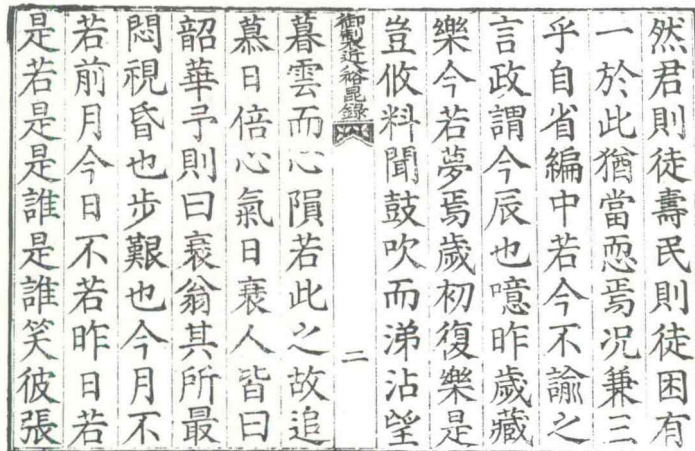 然君則徒壽民則徒困有
一於此猶當恧焉况兼三
乎自省編中若今不諭之
言政謂今辰也噫昨歲藏
樂今若夢焉歲初復樂是
豈攸料聞鼓吹而涕沾望
御製近裕昆錄
二
暮雲而心隕若此之故追
慕日倍心氣日衰人皆曰
韶華予則曰衰翁其所最
悶視昏也步艱也今月不
若前月今日不若昨日若
是若是是誰是誰笑彼張